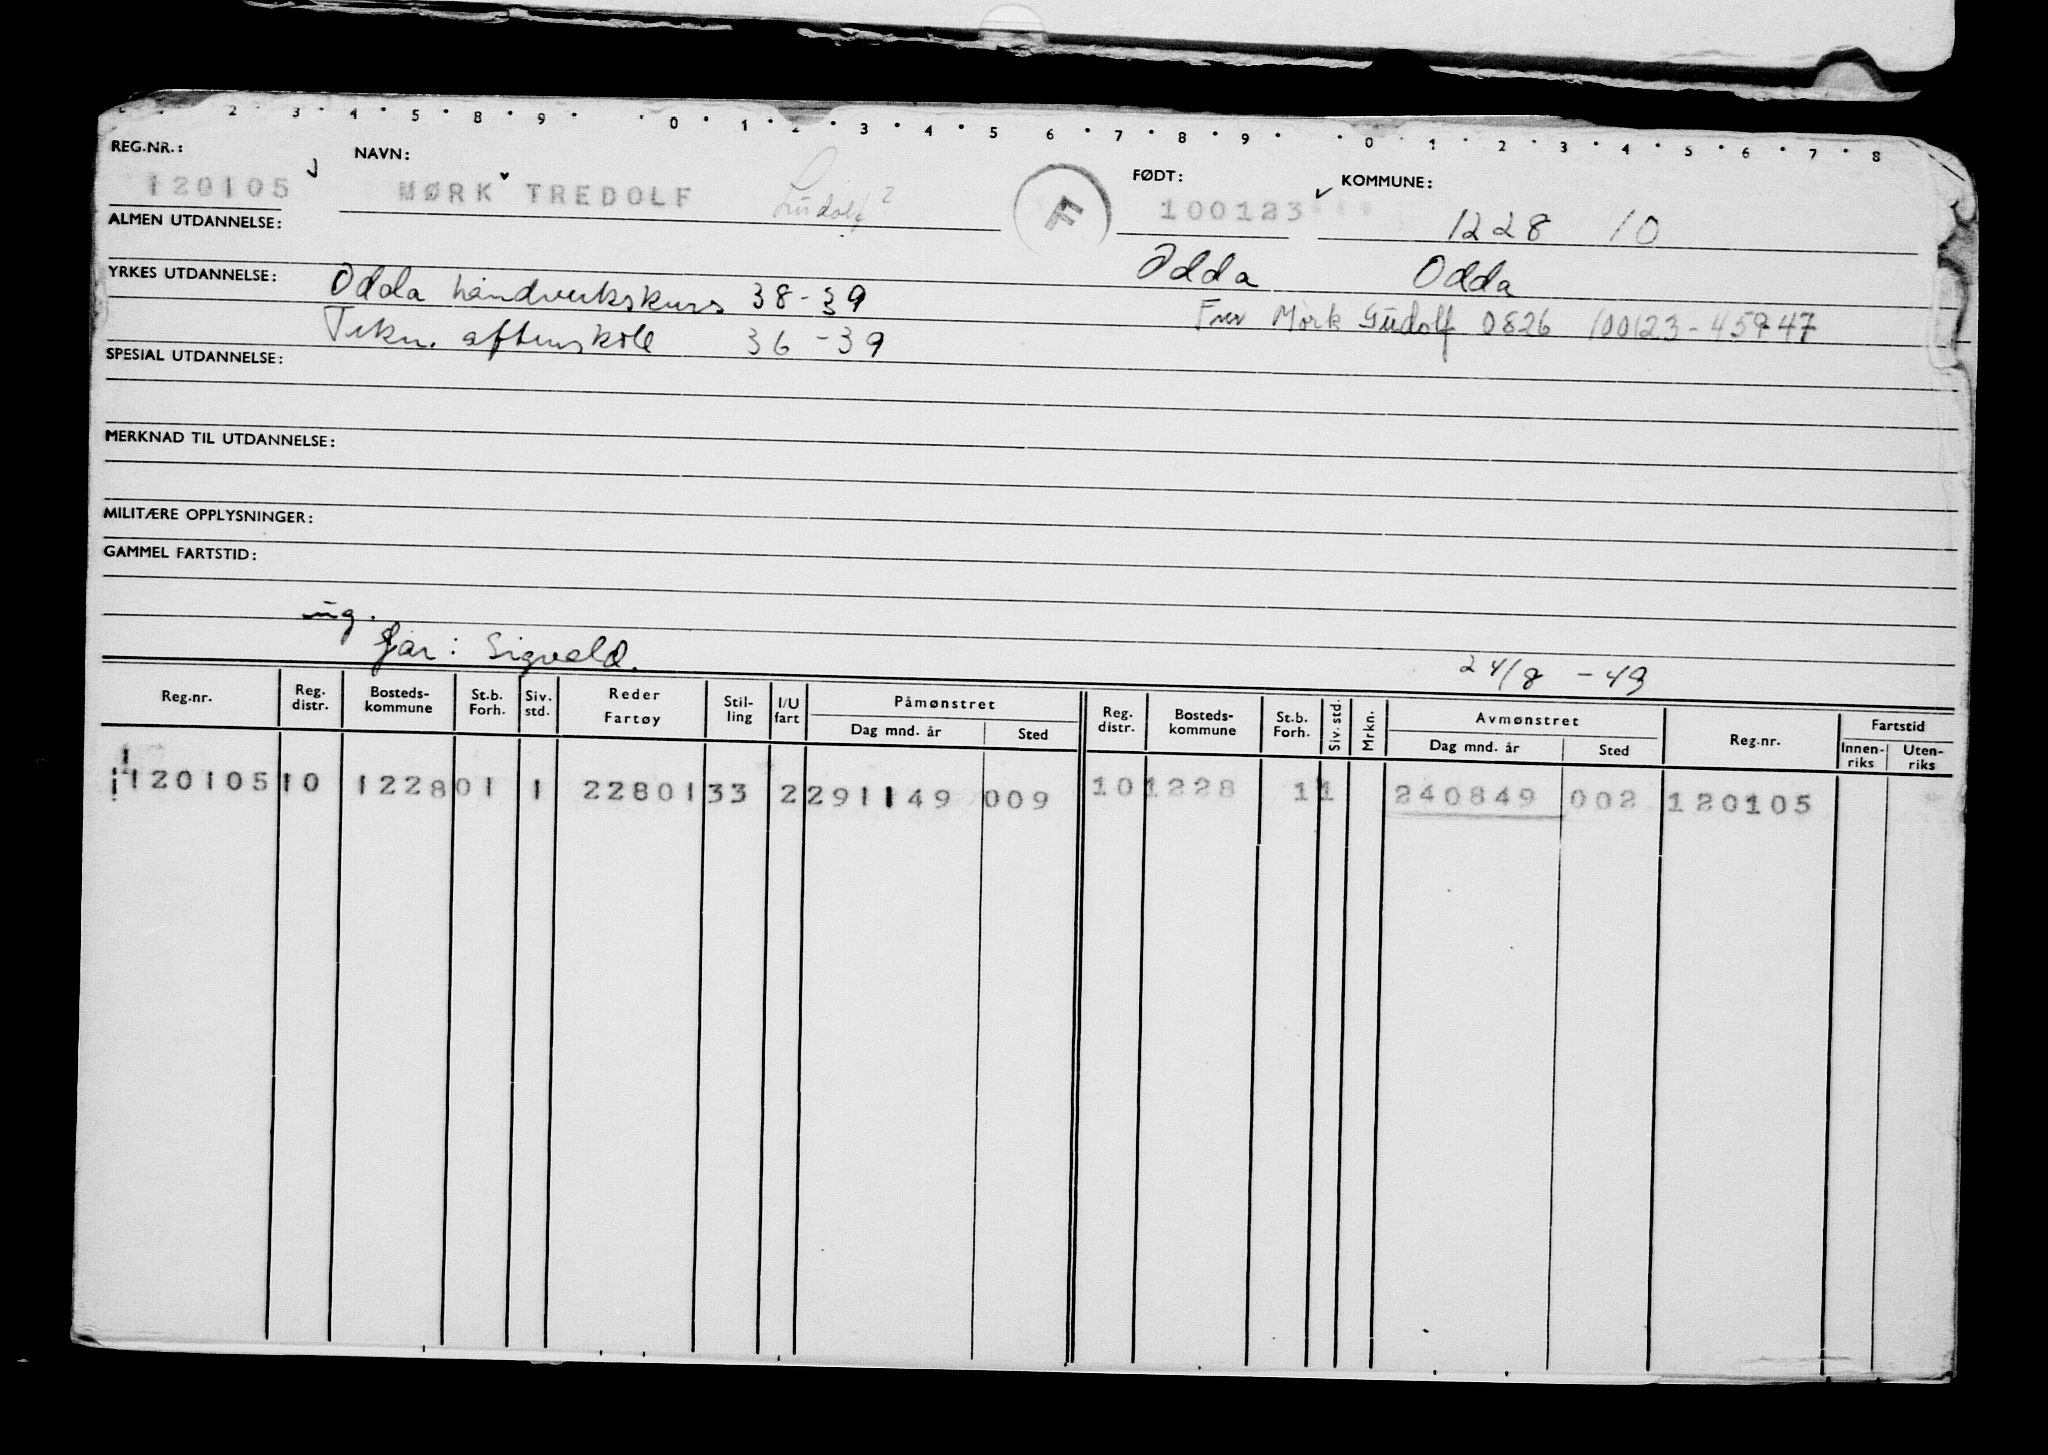 2 · 3 · 4 · 5 · 8 · 9 · · 0 · 1 · 2 · 3 · 4 · 5 6 · 7 · 8 · 9 · · 0 · 1 · 2 · 3 · 4 · 5 · 6 · 7 · 8
REG.NR.: NAVN: FØDT: KOMMUNE:
120105 MØRK TREDOLF Ludolf? FF 100123 1228 10
ALMEN UTDANNELSE:
Odda Odda
YRKES UTDANNELSE: Odda håndverkskurs 38-39
Mørk Gudolf 0826 100123-45947
Tekn. aftenskole 36-39
SPESIAL UTDANNELSE:
MERKNAD TIL UTDANNELSE:
MILITÆRE OPPLYSNINGER:
GAMMEL FARTSTID:
ug.
far: Sigvald. 24/8 -49
Reg.nr. Reg. distr. Bosteds-kommune St.b. Forh. Siv. std. Reder Fartøy Stil-ling I/U fart Påmønstret Dag mnd. år Sted Reg. distr. Bosteds-kommune St.b. Forh. Siv. std. Mrkn. Avmønstret Dag mnd. år Sted Reg.nr. Fartstid Innen-riks Uten-riks
120105 10 1228 01 1 22801 33 2 291149 009 10 1228 1 1 240849 002 120105